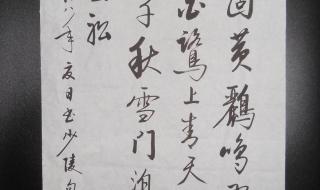 個黄鸝鳴
白鷺上青天
千秋雪门泊
船
年夏日书少陵句